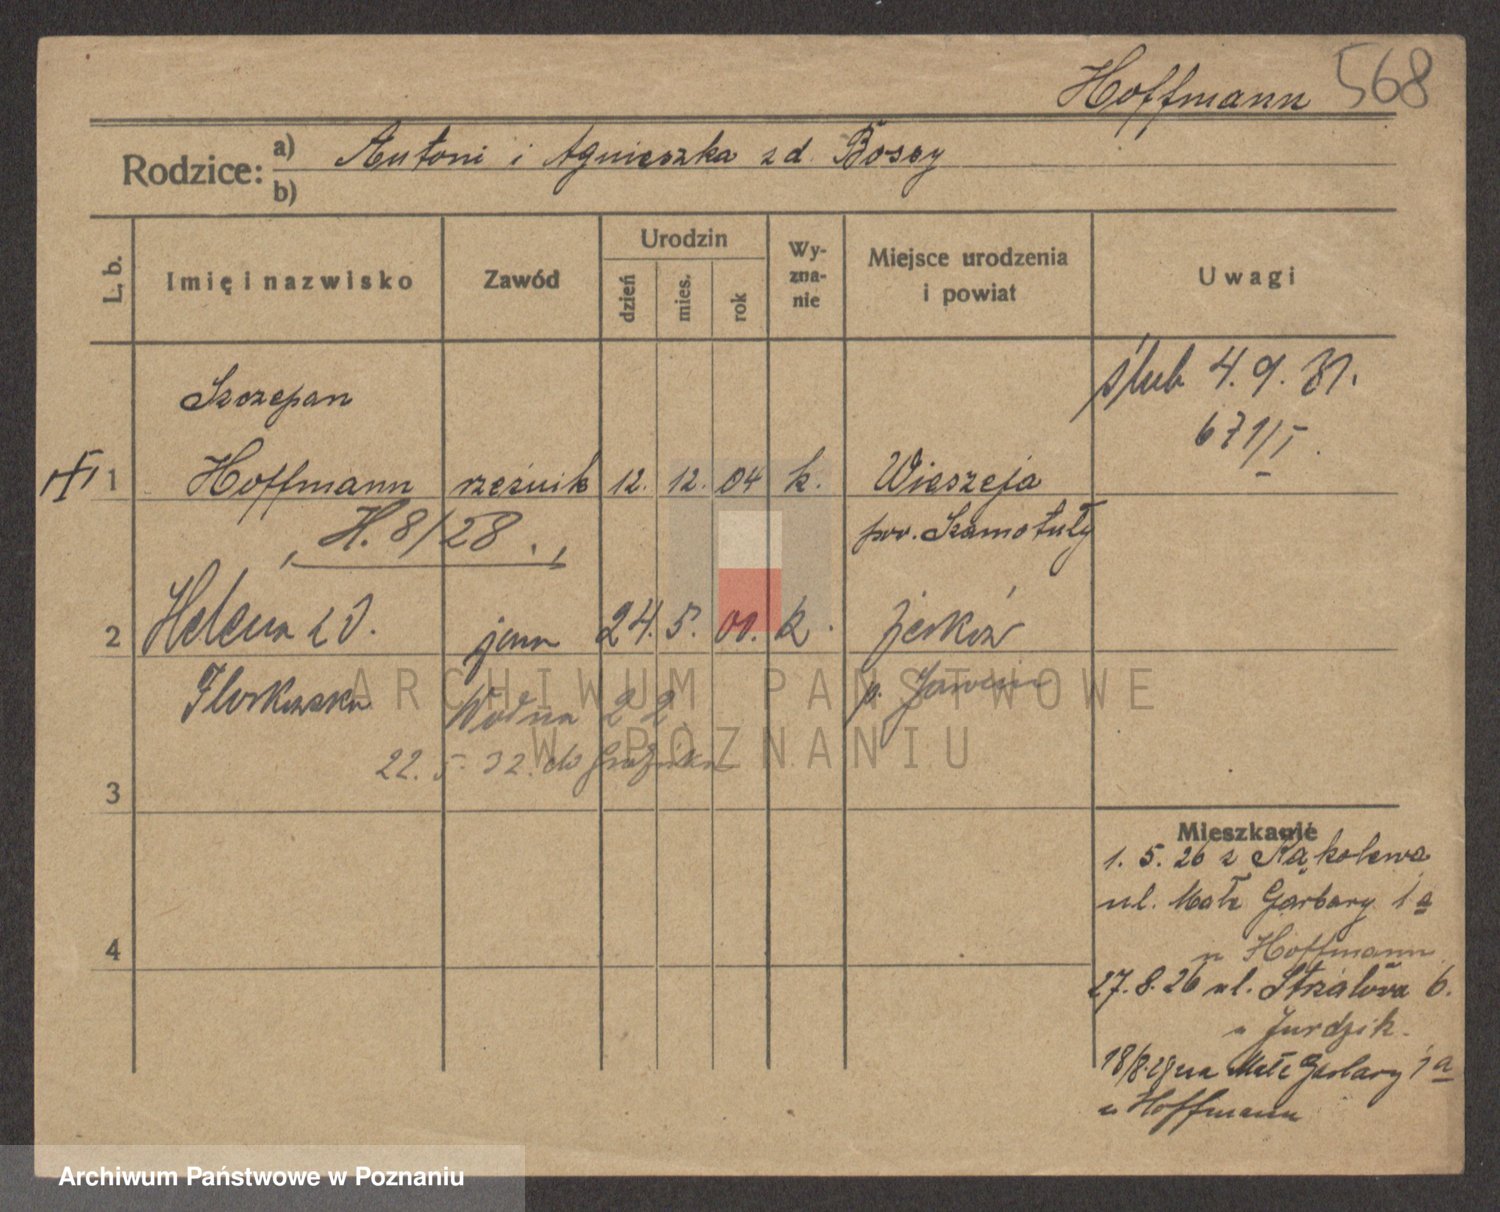 Hoffmann 568
Rodzice: a) Antoni i Agnieszka z d. Bosy
b)
L. b. Imię i nazwisko Zawód Urodzin dzień mies. rok Wyznanie Miejsce urodzenia i powiat Uwagi
ślub 4. 9. 31.
671/I.
Szczepan
1 Hoffmann rzeźnik 12. 12. 04 k. Wieszeja
H. 8/28. pow. Szamotuły
2 Helena z d. żona 24. 5. 01. k.
p.
Wodna 22
22. 5. 32. do
3
4
Mieszkanie
1. 5. 26 z Kąkolewa
ul. Małe Garbary 1a
u Hoffmann
27. 8. 26 ul. Strzałowa 6.
u Jurdzik.
18/8. na Małe Garbary 1a
u Hoffmann
ARCHIWUM PAŃSTWOWE
W POZNANIU
Archiwum Państwowe w Poznaniu